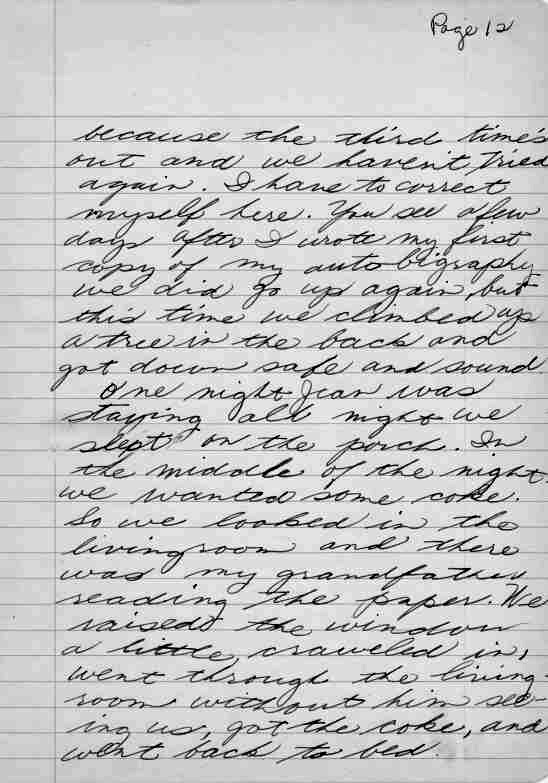 Page 12
because the third time's
out and we haven't tried
again. I have to correct
myself here. You see a few
days after I wrote my first
copy of my autobigraphy
we did go up again, but
this time we climbed up
a tree in the back and
got down safe and sound
One night Jean was
staying all night we
slept on the porch. In
the middle of the night
we wanted some coke.
So we looked in the
livingroom and there
was my grandfather
reading the paper. We
raised the window
a little, craweled in,
went through the living-
room without him see-
ing us, got the coke, and
went back to bed.